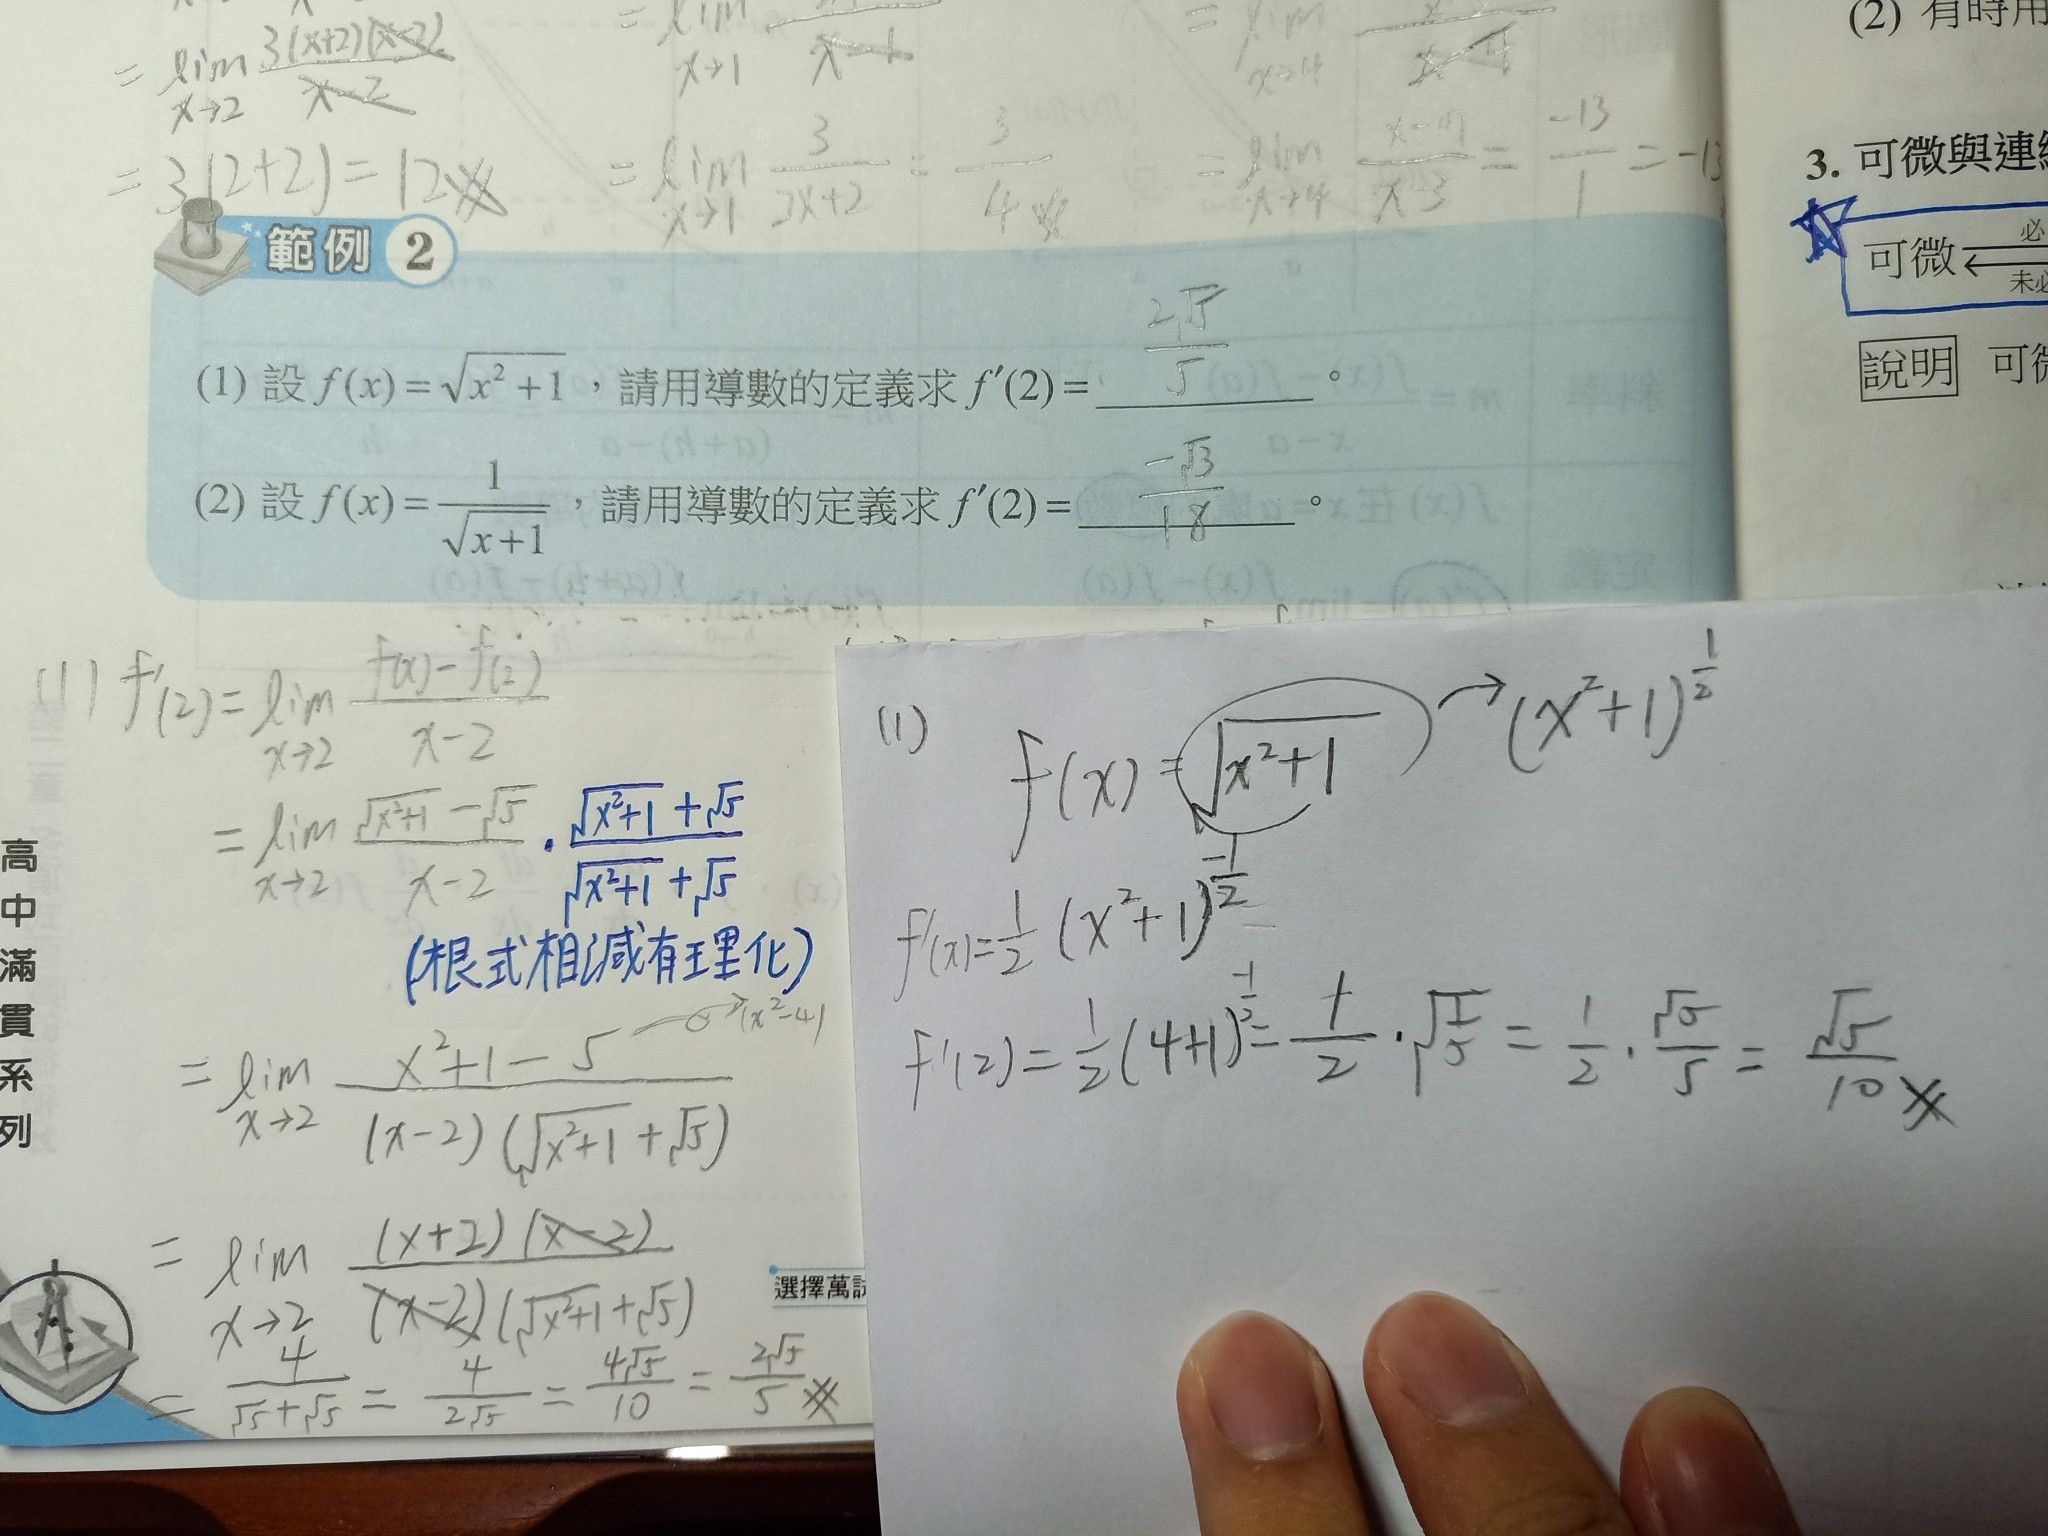 = lim x→2 3(x+2)(x-2) / x-2
= 3(2+2) = 12
= lim x→1 3 / 3x+2 = 3/4
= -13/1 = -13
(2) 有時用
3. 可微與連續
可微
必
未必
說明 可微
範例 2
(1) 設 f(x) = √(x²+1),請用導數的定義求 f′(2) = 2√5/5 。
(2) 設 f(x) = 1/√(x+1),請用導數的定義求 f′(2) = -√3/18 。
(1) f′(2) = lim x→2 f(x)-f(2) / x-2
= lim x→2 √(x²+1) - √5 / x-2 · √(x²+1) + √5 / √(x²+1) + √5
(根式相減有理化)
= lim x→2 x²+1-5 / (x-2)(√(x²+1) + √5) → (x²-4)
= lim x→2 (x+2)(x-2) / (x-2)(√(x²+1) + √5)
= 4/(√5+√5) = 4/2√5 = 4√5/10 = 2√5/5
高中滿貫系列
選擇萬
(1) f(x) = √(x²+1) → (x²+1)^1/2
f′(x) = 1/2 (x²+1)^-1/2
f′(2) = 1/2 (4+1)^-1/2 = 1/2 · √(1/5) = 1/2 · √5/5 = √5/10